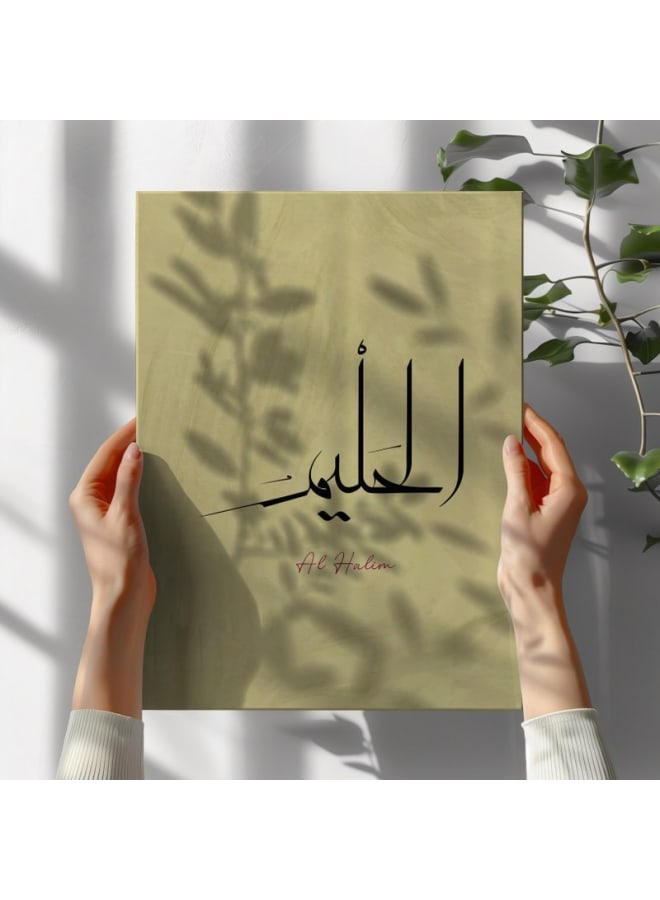 الحليم
Al Halim